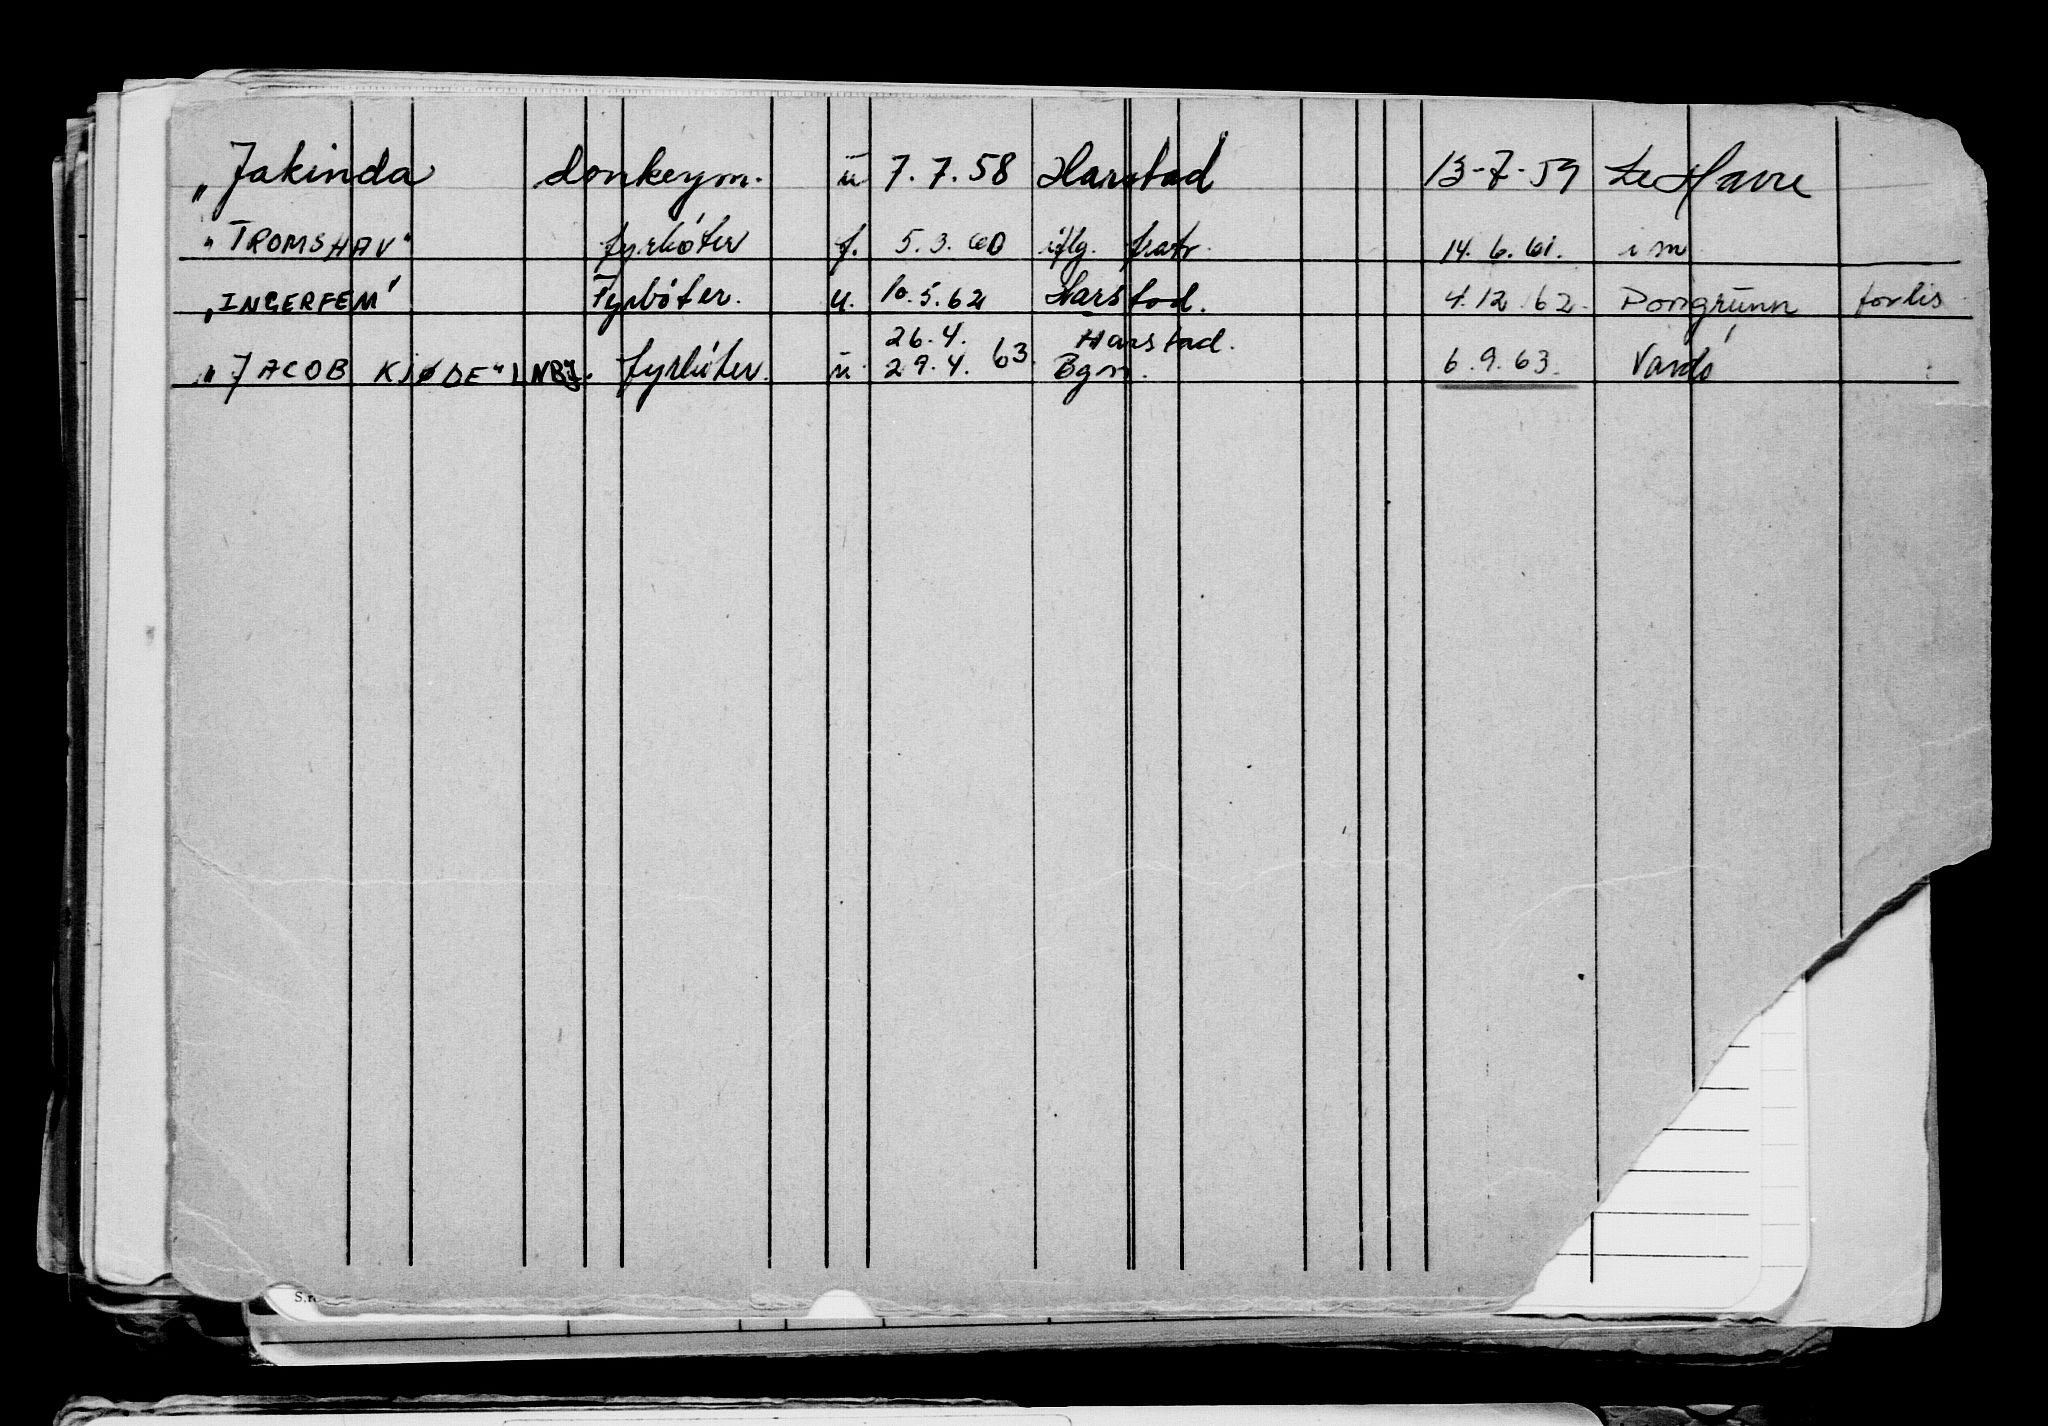 „Jakinda donkeym. ü 7.7.58 Harstad 13-7-59 Le Havre
„TROMSHAV" fyrbøter f. 5.3.60 iflg. fratr. 14.6.61. i m
„INGERFEM" Fyrbøter. u. 10.5.62 Harstad. 4.12.62. Porsgrunn forlis
26.4. Harstad.
„JACOB KJØDE" LNBJ. fyrbøter. ü 29.4.63. Bgn. 6.9.63. Vardø
S.